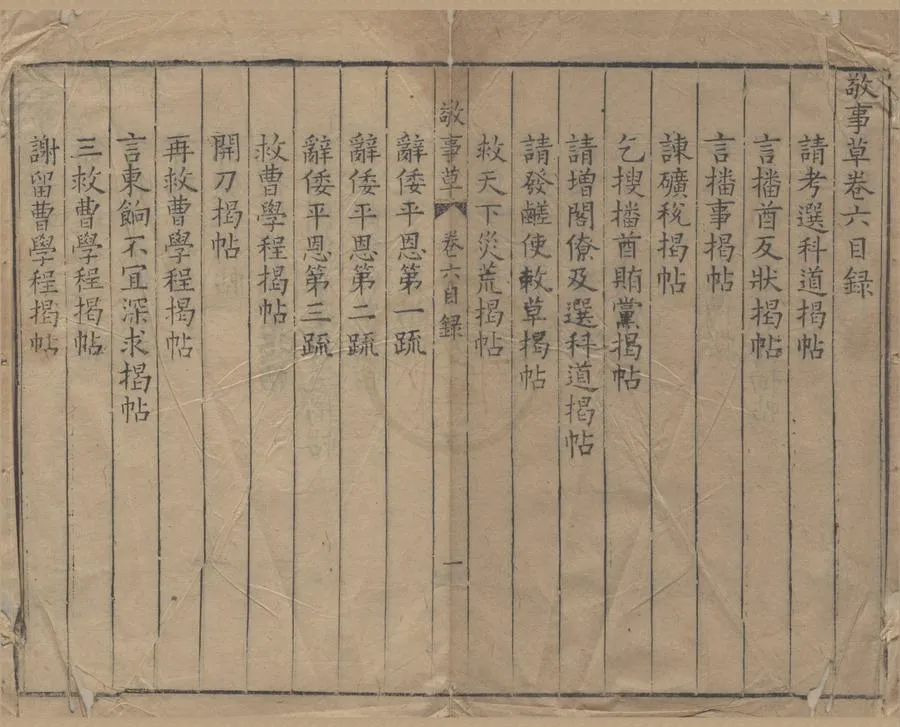 敬事草卷六目録
請考選科道揭帖
言播酋反狀揭帖
言播事揭帖
諫礦稅揭帖
乞搜播酋賄黨揭帖
請增閣僚及選科道揭帖
請發鹺使敕草揭帖
救天下災荒揭帖
敬事草 卷六目録 一
辭倭平恩第一疏
辭倭平恩第二疏
辭倭平恩第三疏
救曹學程揭帖
開刀揭帖
再救曹學程揭帖
言東餉不宜深求揭帖
三救曹學程揭帖
謝留曹學程揭帖